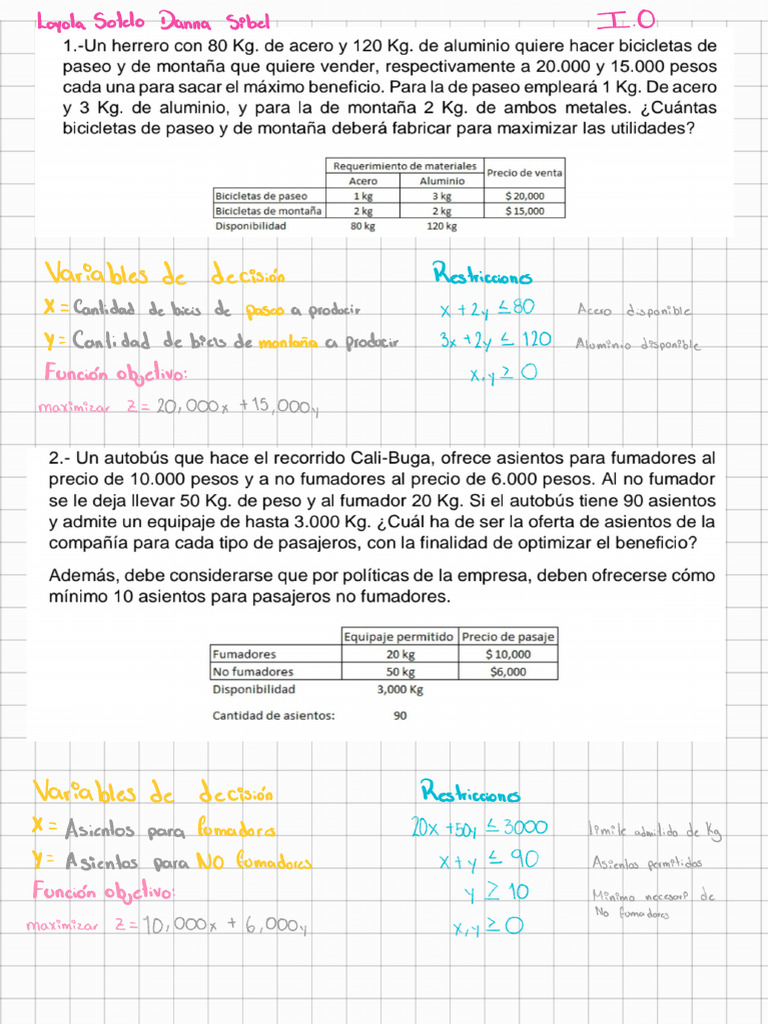 Loyola Sotelo Danna Sibel I.O
1.-Un herrero con 80 Kg. de acero y 120 Kg. de aluminio quiere hacer bicicletas de
paseo y de montaña que quiere vender, respectivamente a 20.000 y 15.000 pesos
cada una para sacar el máximo beneficio. Para la de paseo empleará 1 Kg. De acero
y 3 Kg. de aluminio, y para la de montaña 2 Kg. de ambos metales. ¿Cuántas
bicicletas de paseo y de montaña deberá fabricar para maximizar las utilidades?
Requerimiento de materiales Precio de venta
Acero Aluminio
Bicicletas de paseo 1 kg 3 kg $ 20,000
Bicicletas de montaña 2 kg 2 kg $ 15,000
Disponibilidad 80 kg 120 kg
Variables de decisión Restricciones
X = Cantidad de bicis de paseo a producir x + 2y ≤ 80 Acero disponible
Y = Cantidad de bicis de montaña a producir 3x + 2y ≤ 120 Aluminio disponible
Función objetivo: x, y ≥ 0
maximizar Z = 20,000x + 15,000y
2.- Un autobús que hace el recorrido Cali-Buga, ofrece asientos para fumadores al
precio de 10.000 pesos y a no fumadores al precio de 6.000 pesos. Al no fumador
se le deja llevar 50 Kg. de peso y al fumador 20 Kg. Si el autobús tiene 90 asientos
y admite un equipaje de hasta 3.000 Kg. ¿Cuál ha de ser la oferta de asientos de la
compañía para cada tipo de pasajeros, con la finalidad de optimizar el beneficio?
Además, debe considerarse que por políticas de la empresa, deben ofrecerse cómo
mínimo 10 asientos para pasajeros no fumadores.
Equipaje permitido Precio de pasaje
Fumadores 20 kg $ 10,000
No fumadores 50 kg $6,000
Disponibilidad 3,000 Kg
Cantidad de asientos: 90
Variables de decisión Restricciones
X = Asientos para fumadores 20x + 50y ≤ 3000 limite admitido de Kg
Y = Asientos para NO fumadores x + y ≤ 90 Asientos permitidos
Función objetivo: y ≥ 10 Minimo necesario de
No fumadores
maximizar Z = 10,000x + 6,000y x, y ≥ 0